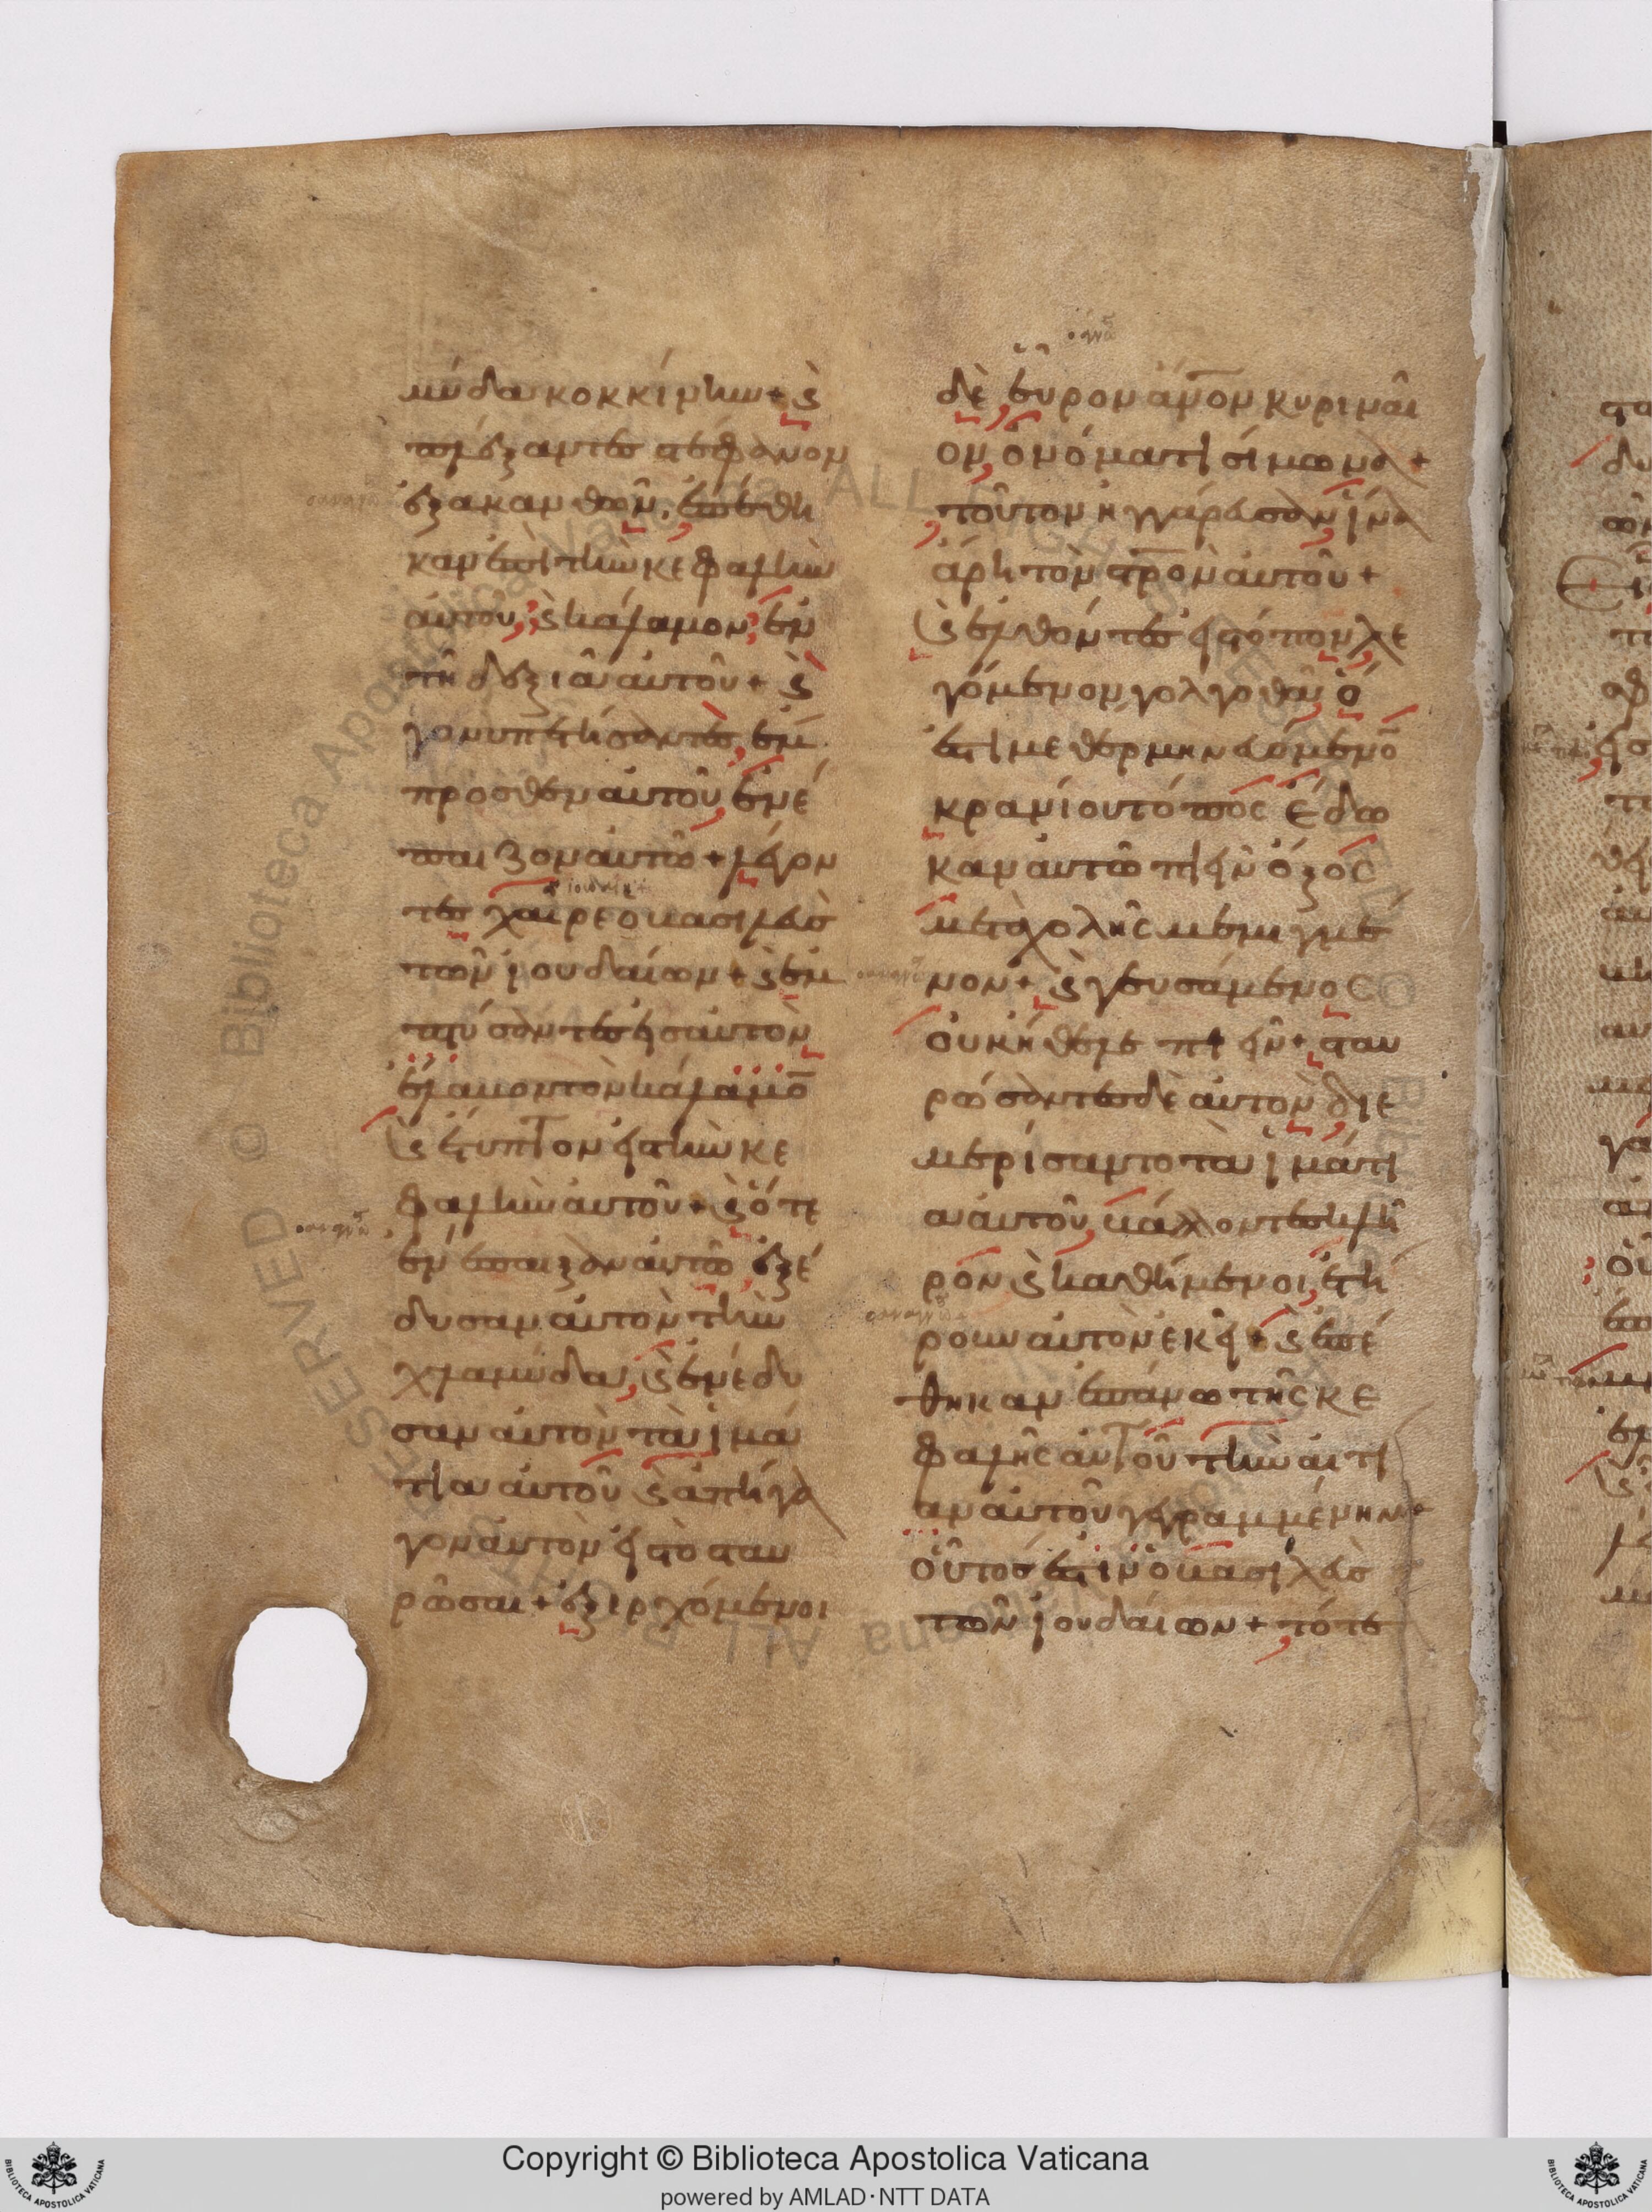 μύδα κοκκίνην + ϗ
πλέξαντες στέφανον
ἐξ ακανθῶν, ἐπέθη
καν ἐπὶ τὴν κεφαλὴν
αὐτοῦ, ϗ κάλαμον, ἐν
τῆ δεξιᾶ αὐτοῦ + ϗ
γονυπετήσαντες, ἐμ
προσθεν αὐτοῦ, ἐνέ
παιζον αὐτῶ + λέγον
τες χαῖρε ὁ βασιλεὺς
τῶν ἰουδαίων + ϗ ἐμ
πτύσαντες εἰς αὐτὸν
ἔλαβον τὸν κάλαμον
ϗ ἔτυπτον εἰς τὴν κε
φαλὴν αὐτοῦ + ϗ ὅτε
ἐνέπαιξαν αὐτῶ, ἐξέ
δυσαν αὐτὸν τὴν
χλαμύδα, ϗ ἐνέδυ
σαν αὐτὸν τὰ ἰμά
τια αὐτοῦ ϗ ἀπήγα
γον αὐτὸν εἰς τὸ σταυ
ρῶσαι + ἐξερχόμενοι
δὲ, εὗρον ἄνον κυριναῖ
ον, ὀνόματι σίμωνα +
τοῦτον ἠγγάρευσαν, ἵνα
ἄρη τὸν στρον αὐτοῦ +
ϗ ἐλθόντες εἰς τόπον, λε
γόμενον γολγοθᾶ, ὅ
ἐστι μεθερμηνευόμενο
κρανίου τόπος ἔδω
καν αὐτῶ πιεῖν ὄξος
μετὰ χολῆς μεμιγμέ
νον + ϗ γευσάμενος
οὐκ ἤθελε πιεῖν + σταυ
ρώσαντες δὲ αὐτὸν, διε
μερίσαντο τὰ ἱμάτι
α αὐτοῦ, βάλλοντες κλῆ
ρον ϗ καθήμενοι, ἐτή
ρουν αὐτὸν ἐκεῖ + ϗ ἐπέ
θηκαν ἐπάνω τῆς κε
φαλῆς αὐτοῦ τὴν αἰτί
αν αὐτοῦ γεγραμμένην +
οὗτος ἐστιν ὁ βασιλεὺς
τῶν ἰουδαίων + τότε
Copyright © Biblioteca Apostolica Vaticana
powered by AMLAD·NTT DATA